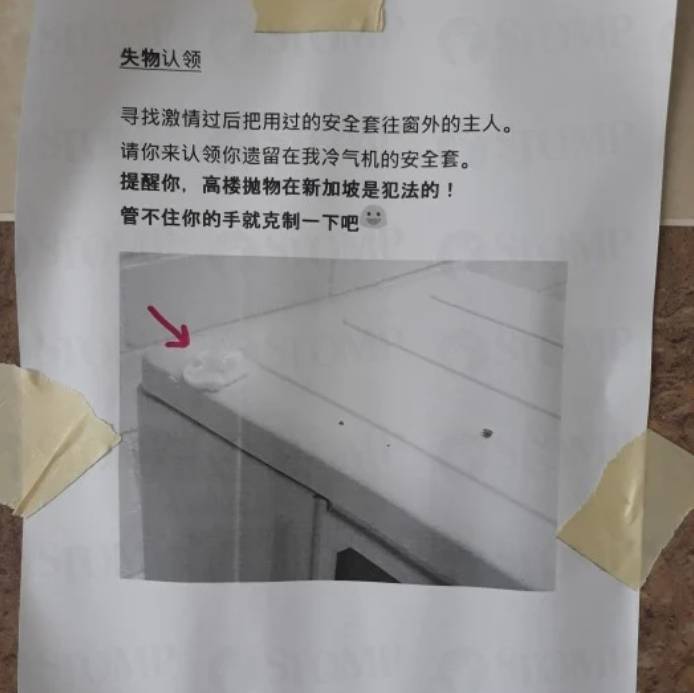 失物认领
寻找激情过后把用过的安全套往窗外的主人。
请你来认领你遗留在我冷气机的安全套。
提醒你，高楼抛物在新加坡是犯法的！
管不住你的手就克制一下吧